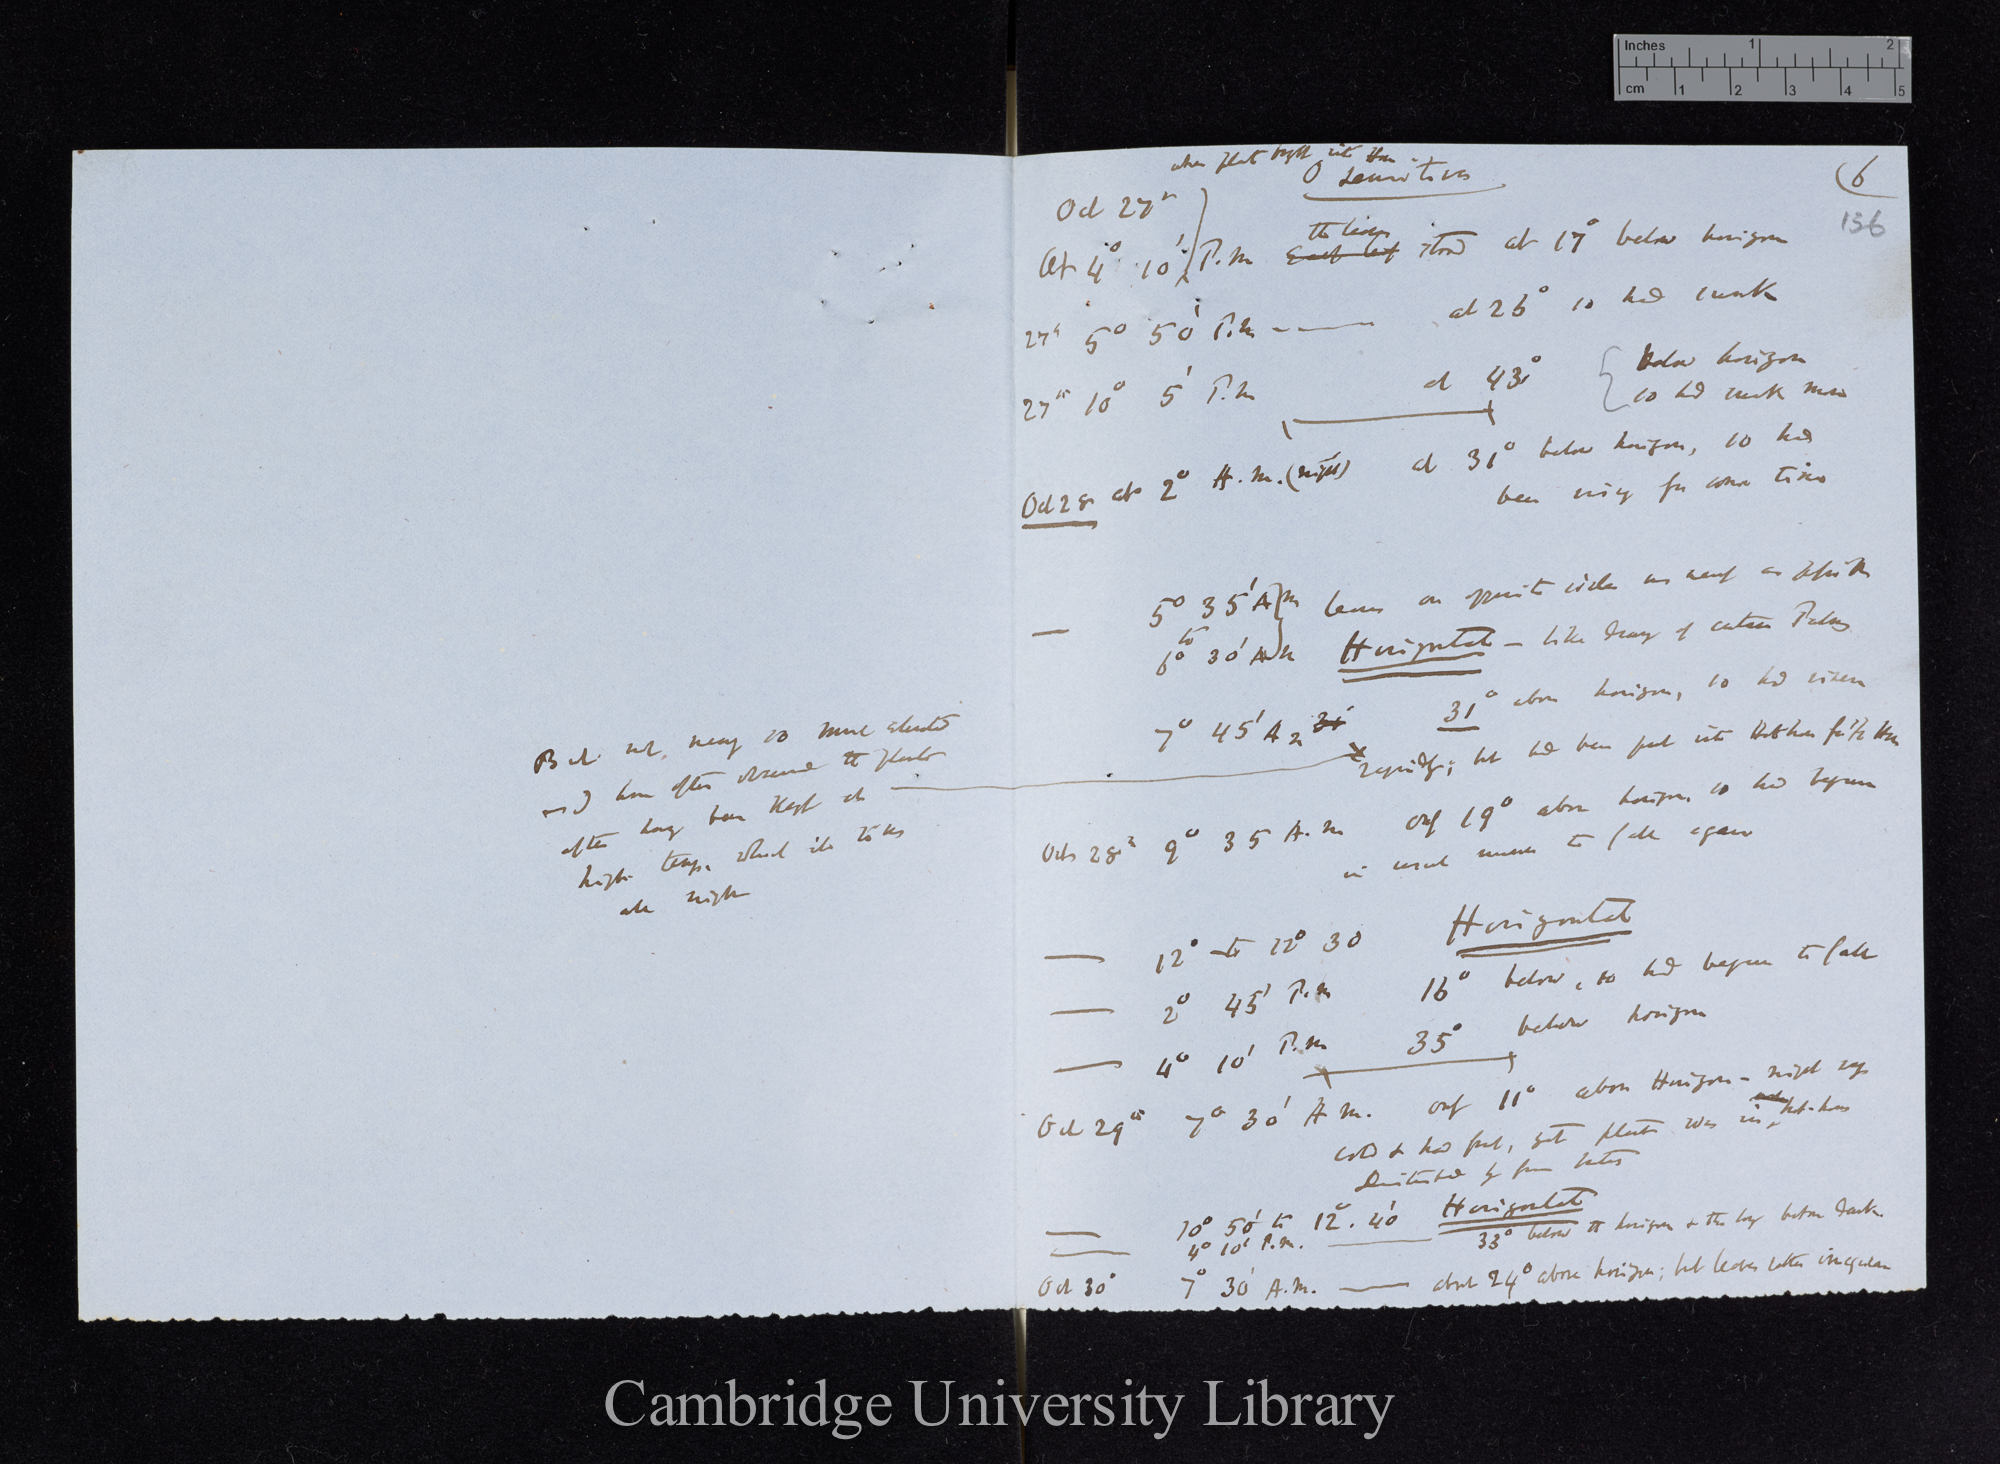 Inches 1 2
cm 1 2 3 4 5
But not nearly so much elevated
as I have often observed the plants
after having been kept at
high temp. which it takes
all night
when plant brought into House
O sensitiva
(6
136
Oct 27th
At 4° 10' P.m the leaves Each leaf stood at 17° below horizon
27th 5° 50' P.m — — — at 26° so had sunk
27th 10° 5' P.m at 43° below horizon
so had sunk more
Oct 28 at 2° A.m. (night) at 31° below horizon, so had
been rising for some time
— 5° 35' A m leaves on opposite sides as nearly as possible
to
6° 30' A m Horizontal — like of certain Palms
7° 45' A m 31° above horizon, so had risen
rapidly; but had been put into Hot-house for 1/2 Hour
Oct 28th 9° 35 A.m only 19° above horizon so had begun
in usual manner to fall again
— 12° to 12° 30 Horizontal
— 2° 45' P.m 16° below, so had begun to fall
— 4° 10' P.m 35° below horizon
Oct 29th 7° 30' A m. only 11° above Horizon — night very
cold & had frost, yet plant was in hot-house
by from
— 10° 50' to 12°. 40' Horizontal
— 4° 10' P.m. — 33° below the horizon & this long before dark.
Oct 30° 7° 30' A.m. — about 24° above horizon; but leaves rather irregular
Cambridge University Library